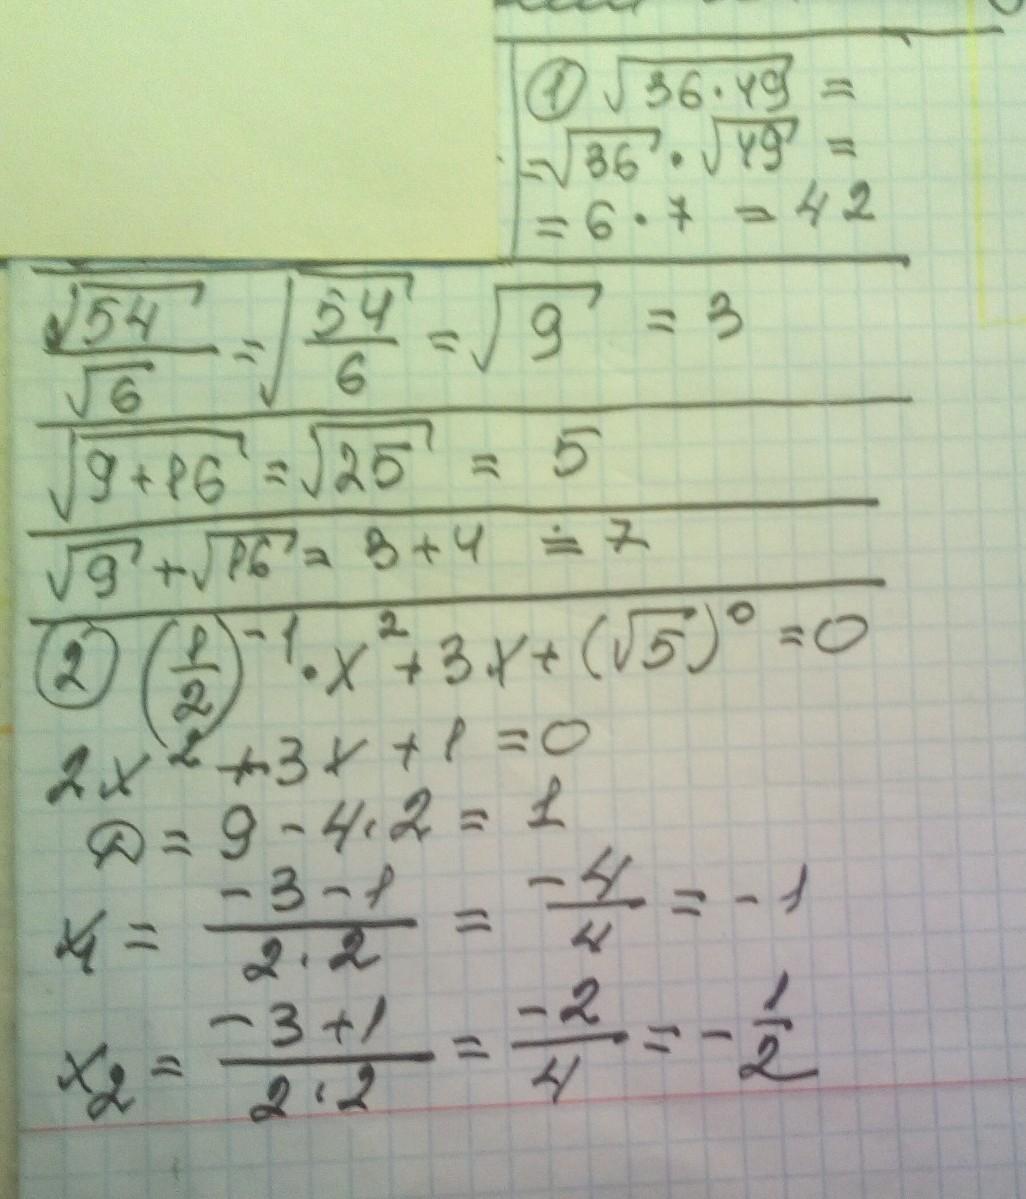 ① √36·49 =
= √36 · √49 =
= 6 · 7 = 42
√54/√6 = √(54/6) = √9 = 3
√9+16 = √25 = 5
√9 + √16 = 3 + 4 = 7
② (1/2)⁻¹ · x² + 3x + (√5)⁰ = 0
2x² + 3x + 1 = 0
D = 9 - 4·2 = 1
x₁ = (-3-1)/(2·2) = -4/4 = -1
x₂ = (-3+1)/(2·2) = -2/4 = -1/2